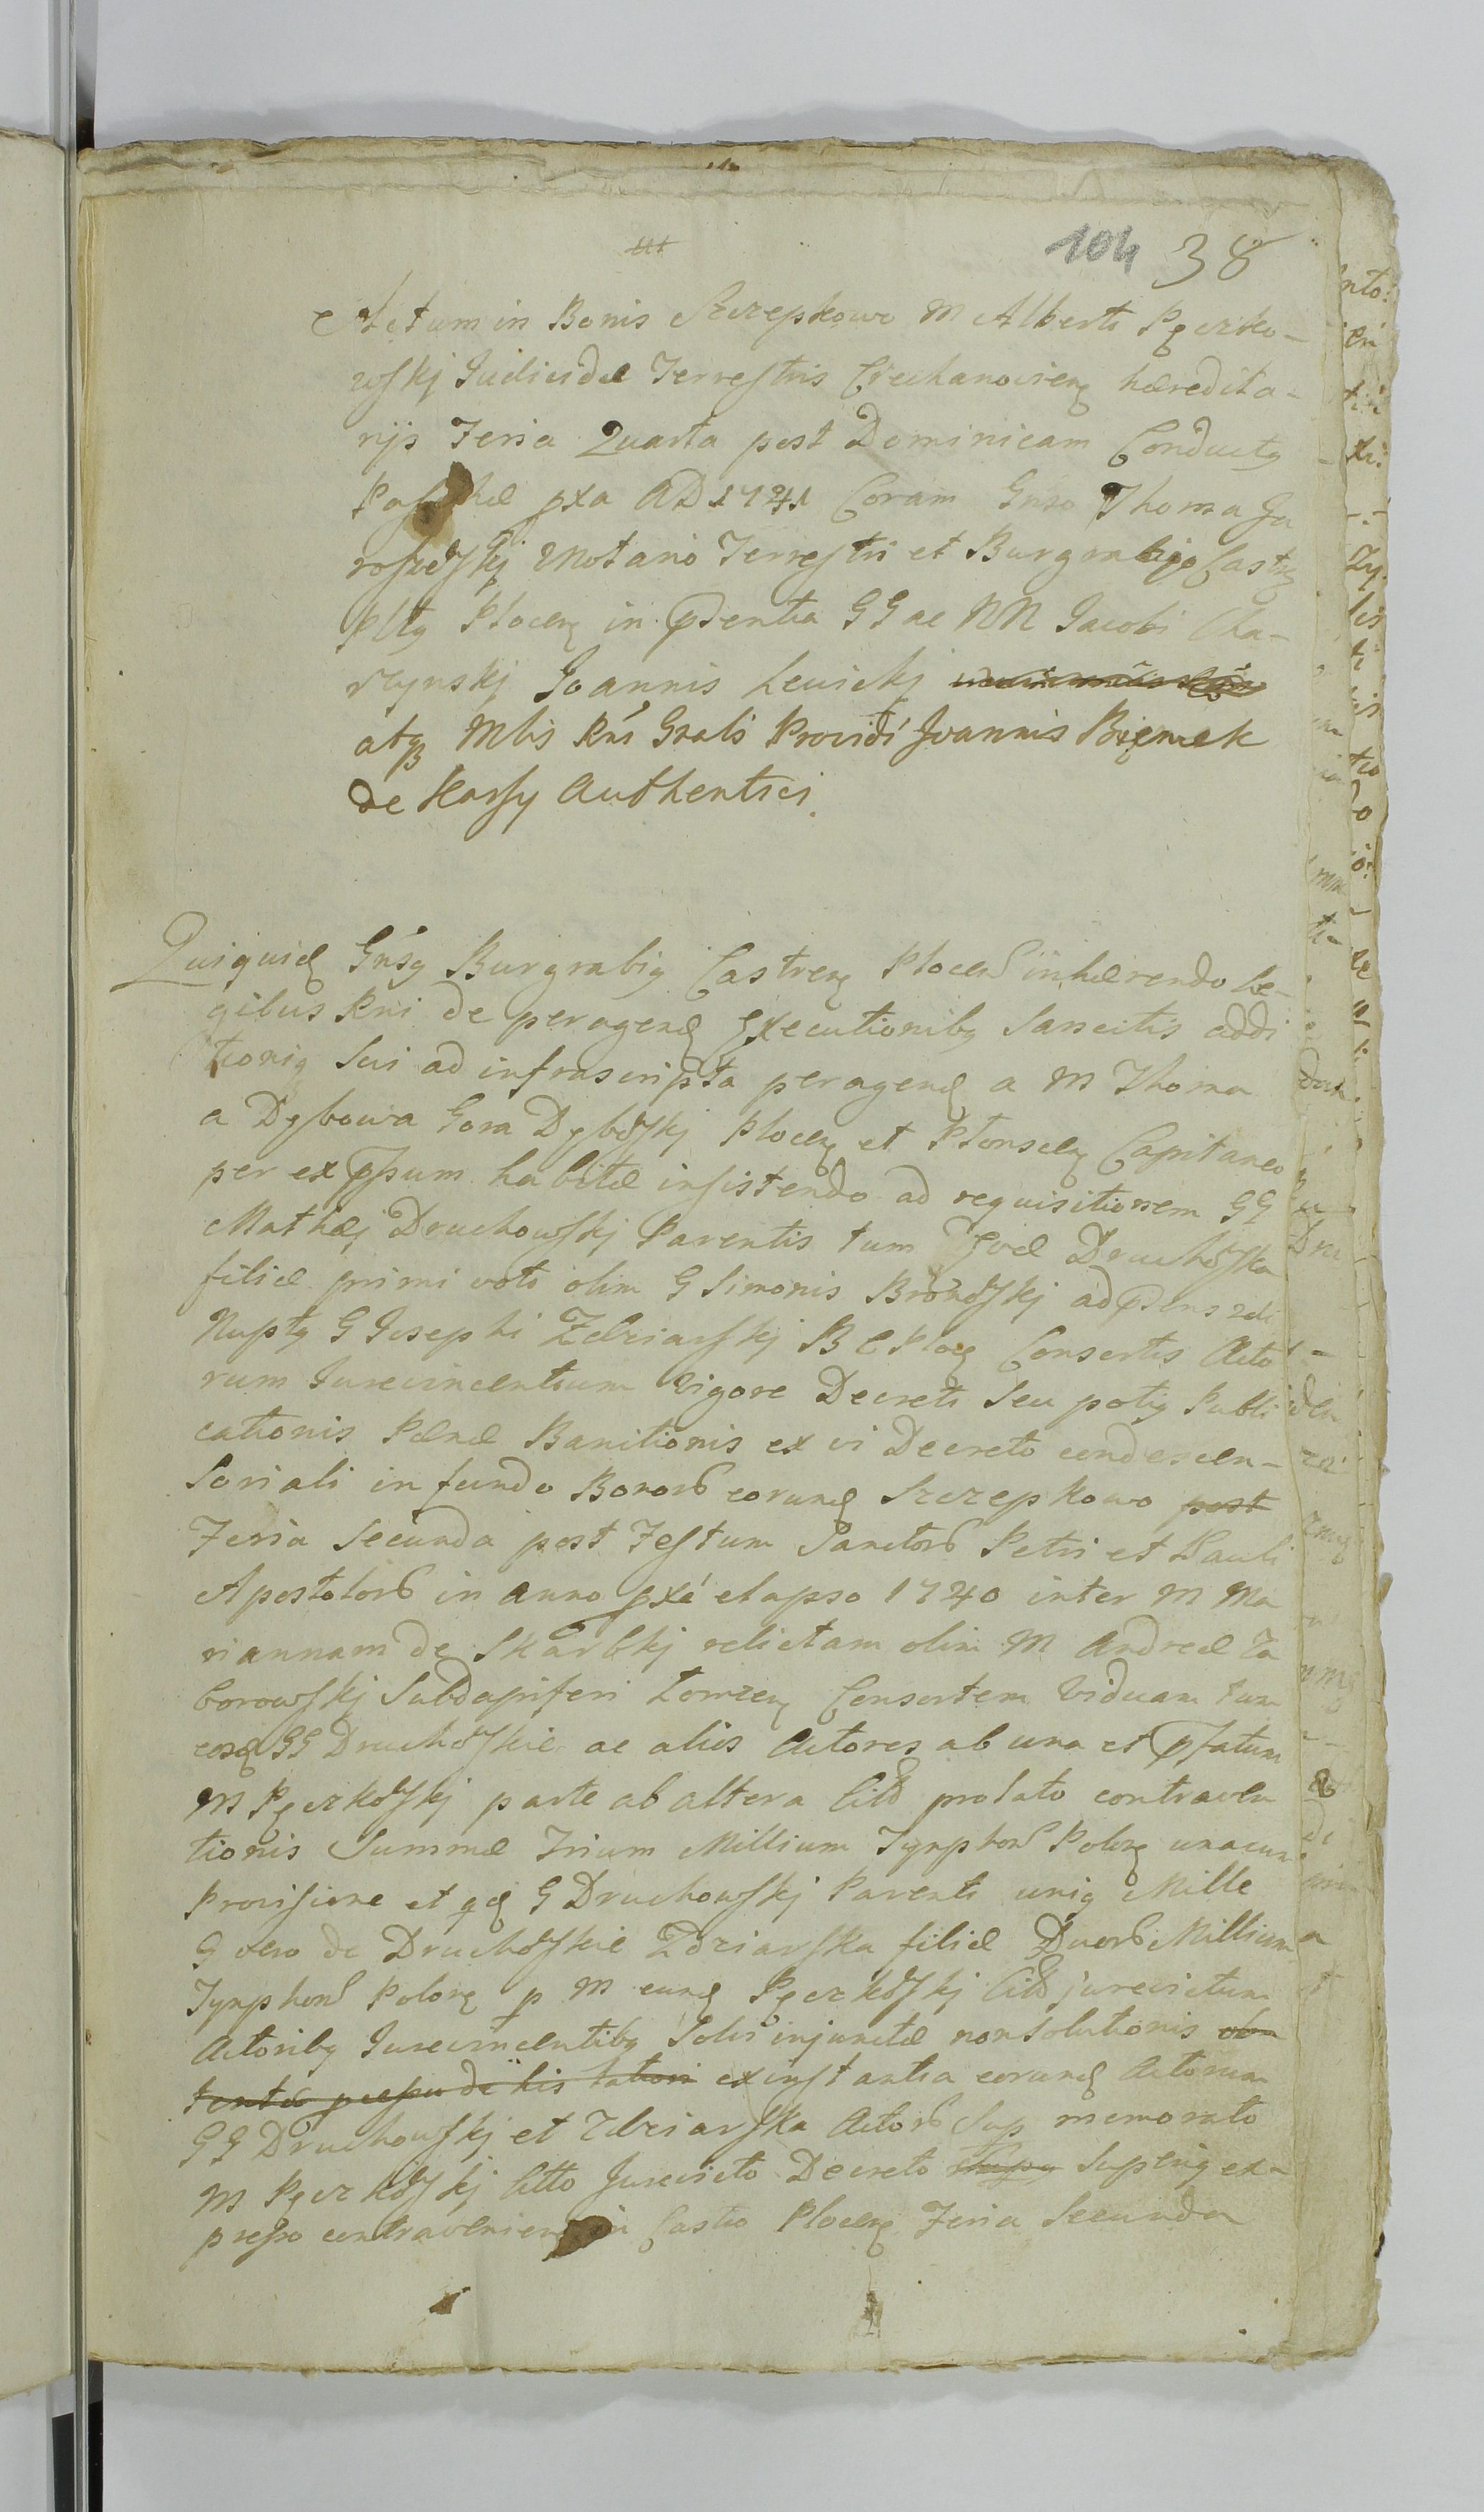 104 38
Actum in Bonis Szczepkowo M Alberti Pęczko-
wskj Judicidæ Terrestris Ciechanovien hæredita-
rijs Feria Quarta post Dominicam Conductg
Paschæ pxa AD 1741 Coram Gnso Thoma Ja
roszewskj Notario Terrestri et Burgrabijo Castr
Pltg Plocen in pdentia GG ac NN Jacobi Cha-
rzynskj Joannis Lewickj
atq Mlis Rni Gnalis Providi Joannis Bieniek
de Karsy Authentici.
Quiquid Gnsg Burgrabig Castren Plocen inhærendo Le-
gibus Rni de peragend Executionibg Sancitis addi
tionig Sui ad infrascripta peragend a M Thoma
a Dębowa Gora Dębowskj Plocen et Plonscen Capitaneo
per expssum habitæ insistendo ad requisitionem GG
Mathæj Druchowskj Parentis tum Evæ Druchowska
filiæ primi voti olim G Simonis Bromowskj ad pdens 2di
Nuptg G Josephi Zdziarskj B C Ploc Consortis Acto
rum Jurevincentium vigore Decreti Seu potig Publi
cationis Pænæ Banitionis ex vi Decreto condescen-
soriali in fundo Bonor eorund Szczepkowo post
Feria Secunda post Festum Sanctor Petri et Pauli
Apostolor in anno pxe elapso 1740 inter M Ma
riannam de Skarbkj relictam olim M Andreæ Za
borowskj Subdapiferi Lomzen Consortem Viduam tum
eosd GG Druchowskie ac alios Actores ab una et pfatum
M Pęczkowskj parte ab altera Cito prolato contraven
tionis Summæ Trium Millium Tynphor Polon unacum
Provisione et qd G Druchowskj Parenti unig Mille
G vero de Druchowskie Zdziarska filiæ Duor Millium
Tynphor Polon p M eund Pęczkowskj Cito jurevictum
Actoribg Jurevincentibg Solvi injunctæ non Solutionis
ex instantia eorund Actorum
GG Druchowskj et Zdziarska Actor Sup memorato
M Pęczkowskj Citto Jurevicto Decreto Suptig ex-
presso contravenien in Castro Plocen Feria Secunda